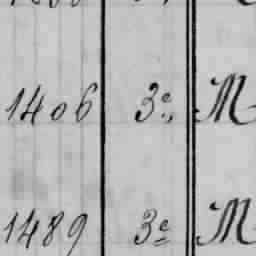 1406 3e, M
1489 3e M